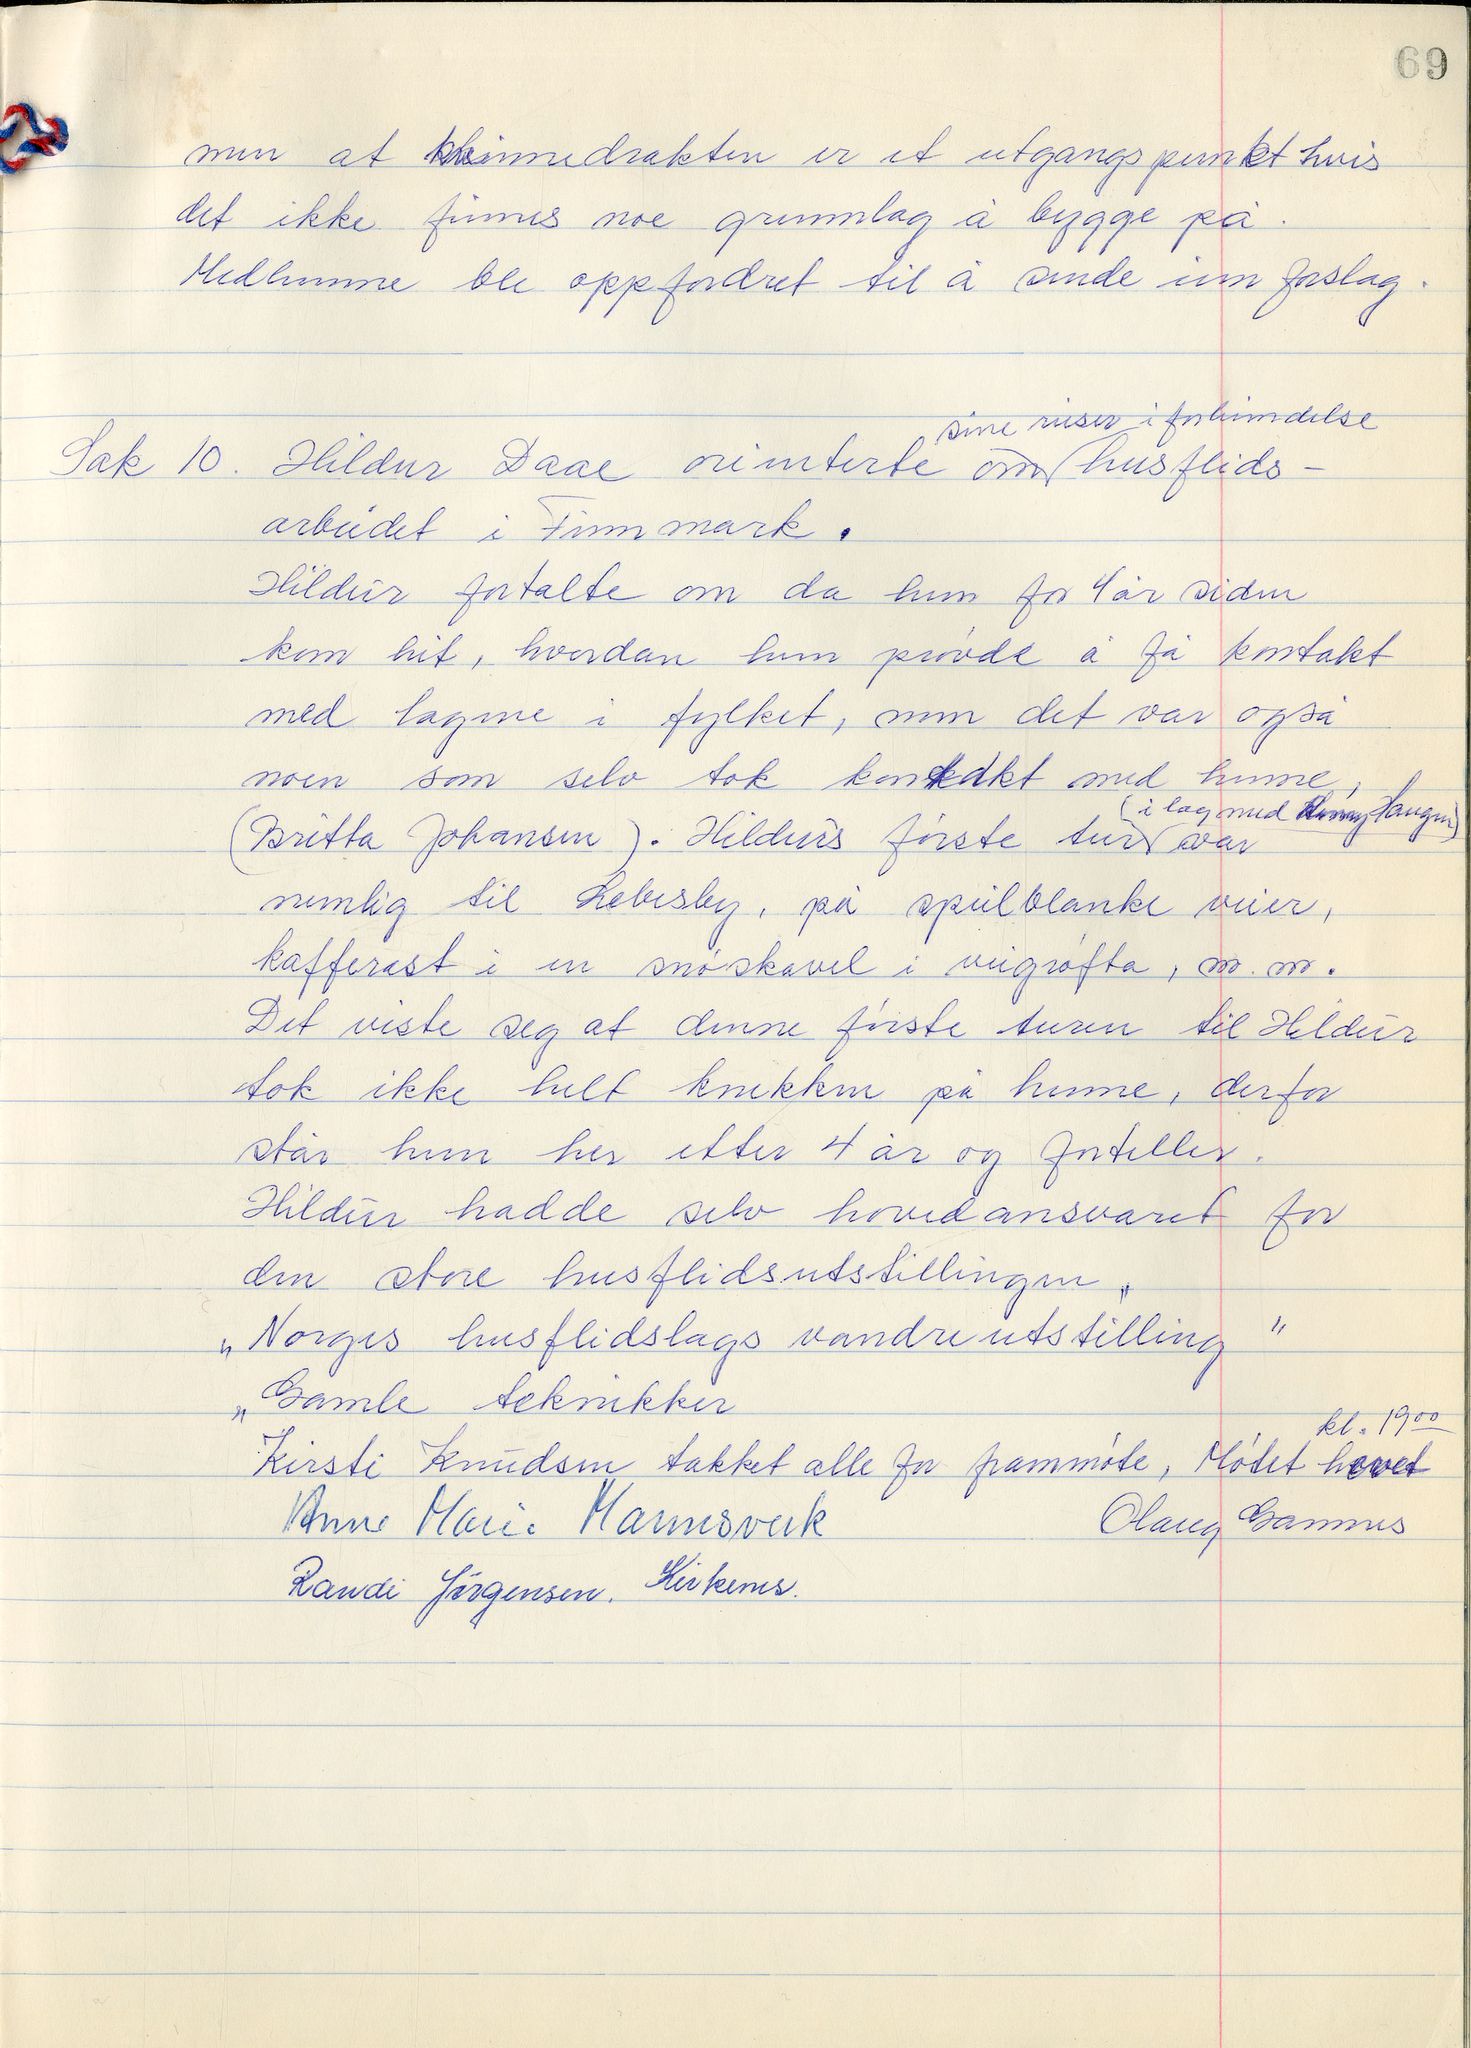 69
men at kvinnedrakten er et utgangspunkt hvis
det ikke finnes noe grunnlag å bygge på.
Medlemme ble oppfordret til å sende inn forslag.
sine reiser i forbindelse
Sak 10. Hildur Daae orienterte om husflids-
arbeidet i Finnmark.
Hildur fortalte om da hun for 4 år siden
kom hit, hvordan hun prøvde å få kontakt
med lagene i fylket, men det var også
noen som selv tok kontakt med henne,
(i lag med Haugen)
(Britta Johansen). Hildurs første tur var
nemlig til Lebesby, på speilblanke veier,
kafferast i en snøskavel i veigrøfta, m.m.
Det viste seg at denne første turen til Hildur
tok ikke helt knekken på henne, derfor
står hun her etter 4 år og forteller.
Hildur hadde selv hovedansvaret for
den store husflidsutstillingen,
„Norges husflidslags vandreutstilling"
„Gamle teknikker
kl. 19⁰⁰
Kirsti Knudsen takket alle for frammøte, Møtet hevet
Anne Marie Mannsverk Olaug Gamnes
Randi Jørgensen. Kirkenes.